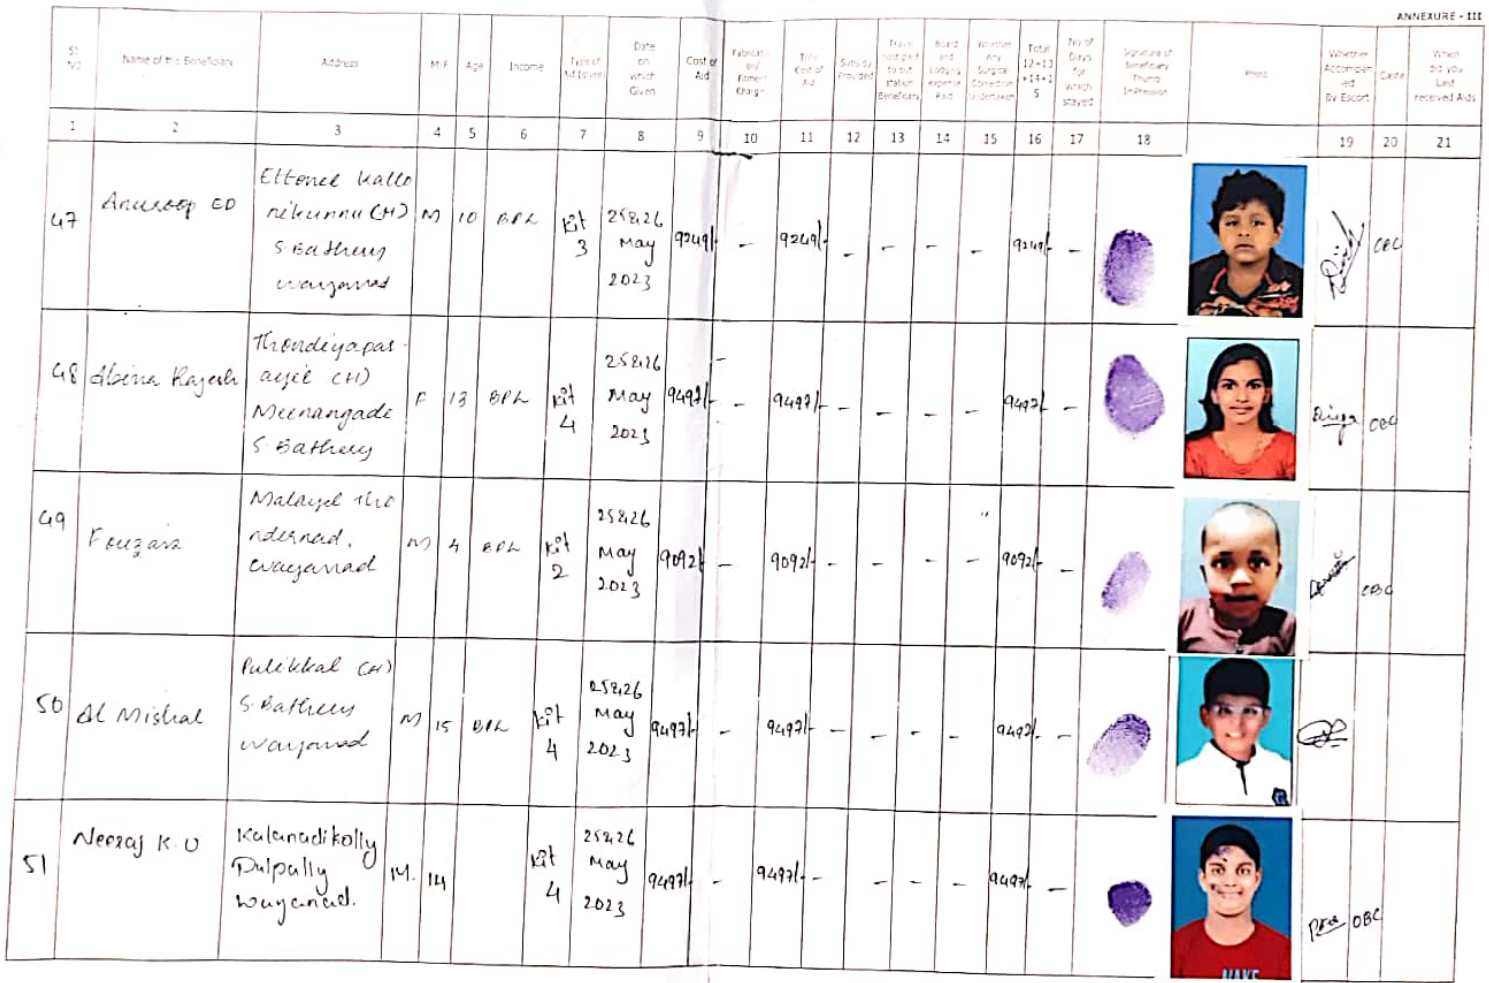 ANNEXURE - III
Sl No Name of the Beneficiary Address M/F Age Income Type of Aid (given) Date on which Given Cost of Aid Fabrication/ Fitment Charge Total Cost of Aid Subsidy Provided Travel cost paid to out station Beneficiary Board and Lodging expense Paid Whether Any Surgical Correction Undertaken Total 12+13+14+15 No of Days for which stayed Signature of Beneficiary Thump Impression Photo Whether Accompanied By Escort Caste When did you Last received Aids
1 2 3 4 5 6 7 8 9 10 11 12 13 14 15 16 17 18 19 20 21
47 Anuroop ED
nikunnu (H)
S. Bathery
wayanad
M 10 BPL Kit 3 25&26 May 2023 9249/- - 9249/- - - - - 9249/- -
48 Abina Rajesh
(H)
S. Bathery
F 13 BPL Kit 4 25&26 May 2023 9497/- - 9497/- - - - - 9497/- - OBC
49
wayanad
M 4 BPL Kit 2 25&26 May 2023 9092/- - 9092/- - - - - 9092/- - OBC
50 Al Mishal
Pulikkal (H)
S. Bathery
wayanad
M 15 BPL Kit 4 25&26 May 2023 9497/- - 9497/- - - - - 9497/- -
51 Neeraj K.U
Kalanadikolly
Pulpally
wayanad.
M. 14 Kit 4 25&26 May 2023 9497/- - 9497/- - - - - 9497/- - OBC